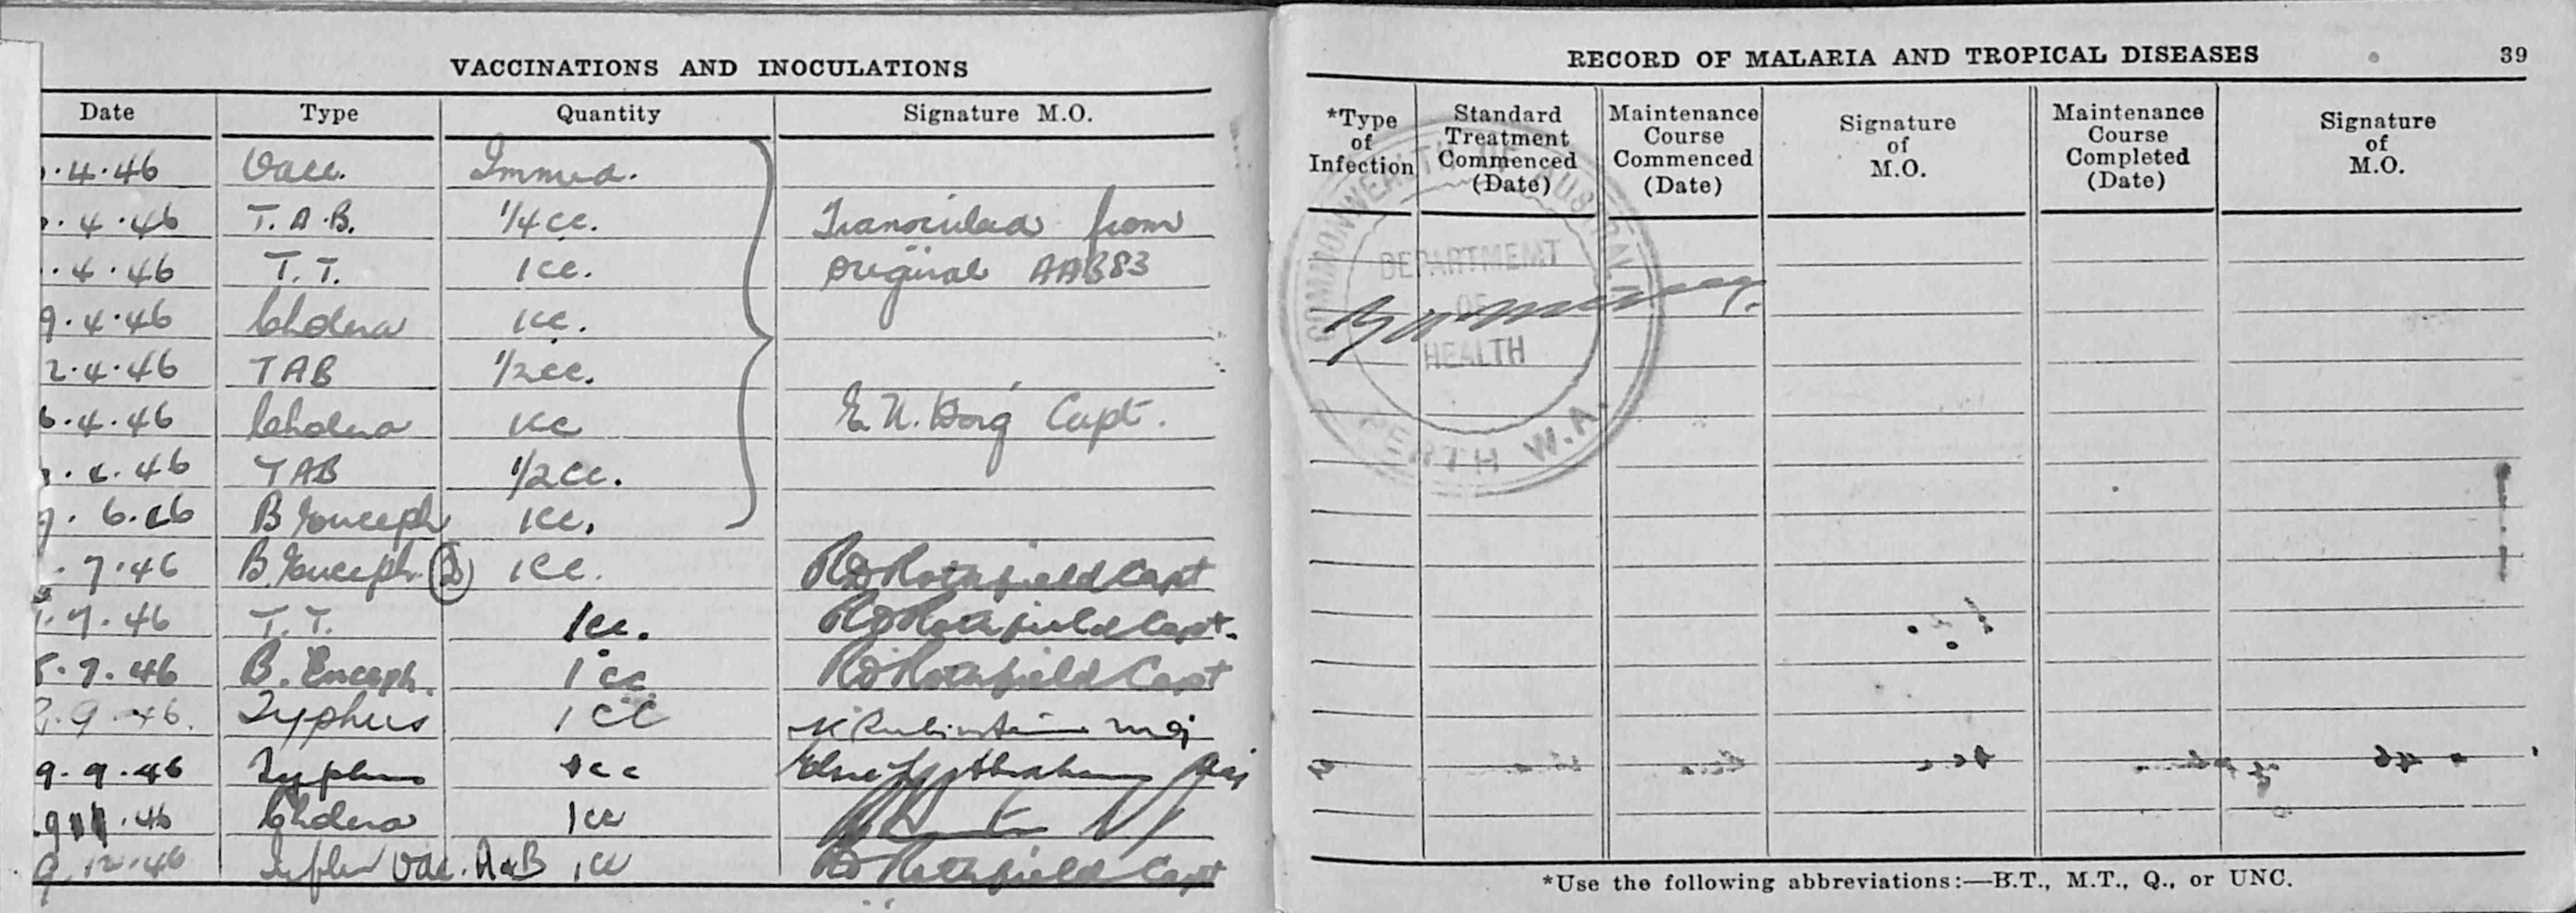 VACCINATIONS AND INOCULATIONS
Date Type Quantity Signature M.O.
.4.46 Vacc. Immed.
.4.46 T.A.B. 1/4cc. from
.4.46 T.T. 1cc. original AAB83
9.4.46 Cholera 1cc.
2.4.46 TAB 1/2cc.
6.4.46 Cholera 1cc E.N. Capt.
.46 TAB 1/2cc.
.6.46 B Enceph 1cc.
.7.46 B. Enceph. (2) 1cc. RD Rothfield Capt
.7.46 T.T. 1cc. RD Rothfield Capt.
5.7.46 B. Enceph. 1cc RD Rothfield Capt
.9.46. Typhus 1cc Rubinstein Maj
9.9.46 Typhus 1cc Abraham Maj
.46 Cholera 1cc
9.12.46 Vac. A&B 1cc RD Rothfield Capt
RECORD OF MALARIA AND TROPICAL DISEASES 39
*Type of Infection
Standard Treatment Commenced (Date)
Maintenance Course Commenced (Date)
Signature of M.O.
Maintenance Course Completed (Date)
Signature of M.O.
COMMONWEALTH OF AUSTRALIA
DEPARTMENT
OF
HEALTH
PERTH W.A.
*Use the following abbreviations:—B.T., M.T., Q., or UNC.